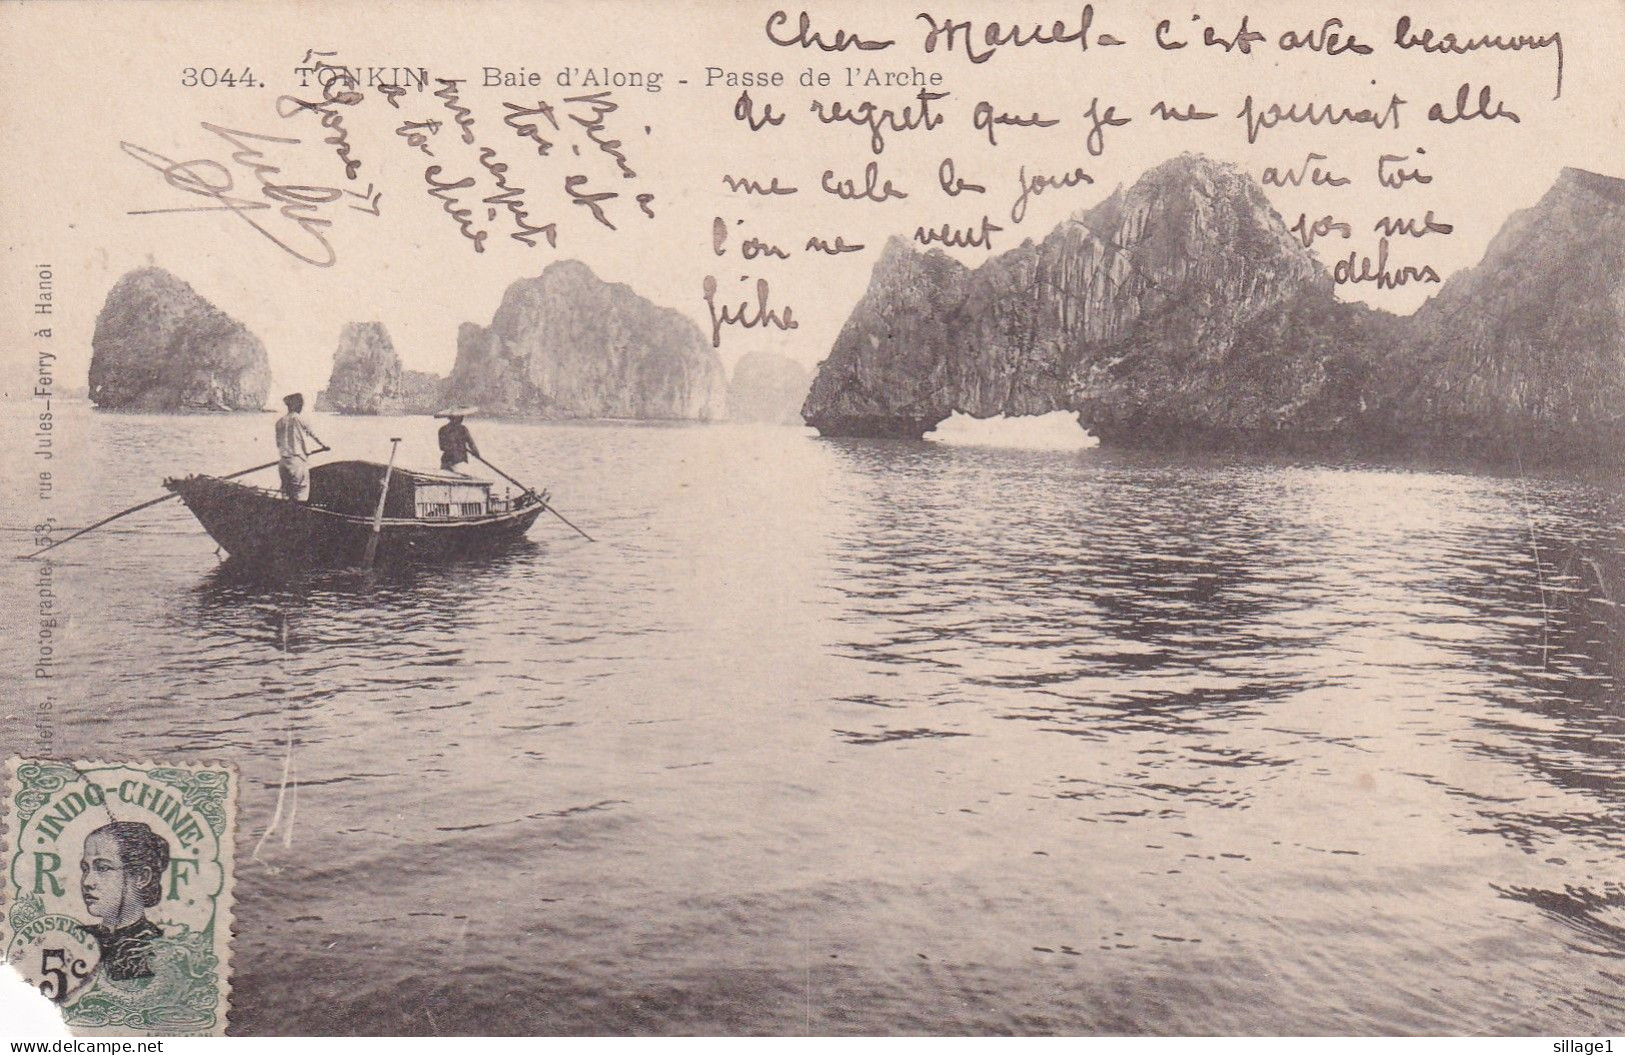 3044. TONKIN - Baie d'Along - Passe de l'Arche
Cher Marcel - C'est avec beaucoup
de regrets que je ne pourrait aller
me cale les joues avec toi
l'on ne veut pas me
fiche dehors
Bien a
toi et
mes respect
a ta chère
"Gosse"
Dieulefils, Photographe, 53, rue Jules-Ferry à Hanoi
INDO-CHINE
R F.
POSTES
5c
delcampe.net
sillage1